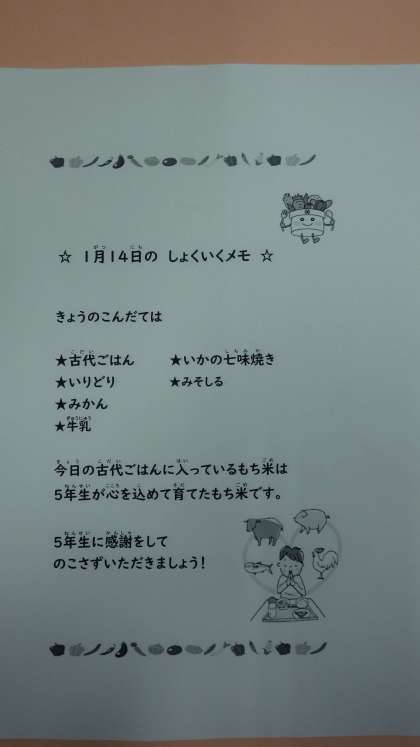 ☆ 1月14日の しょくいくメモ ☆
きょうのこんだては
★古代ごはん ★いかの七味焼き
★いりどり ★みそしる
★みかん
★牛乳
今日の古代ごはんに入っているもち米は
5年生が心を込めて育てたもち米です。
5年生に感謝をして
のこさずいただきましょう！